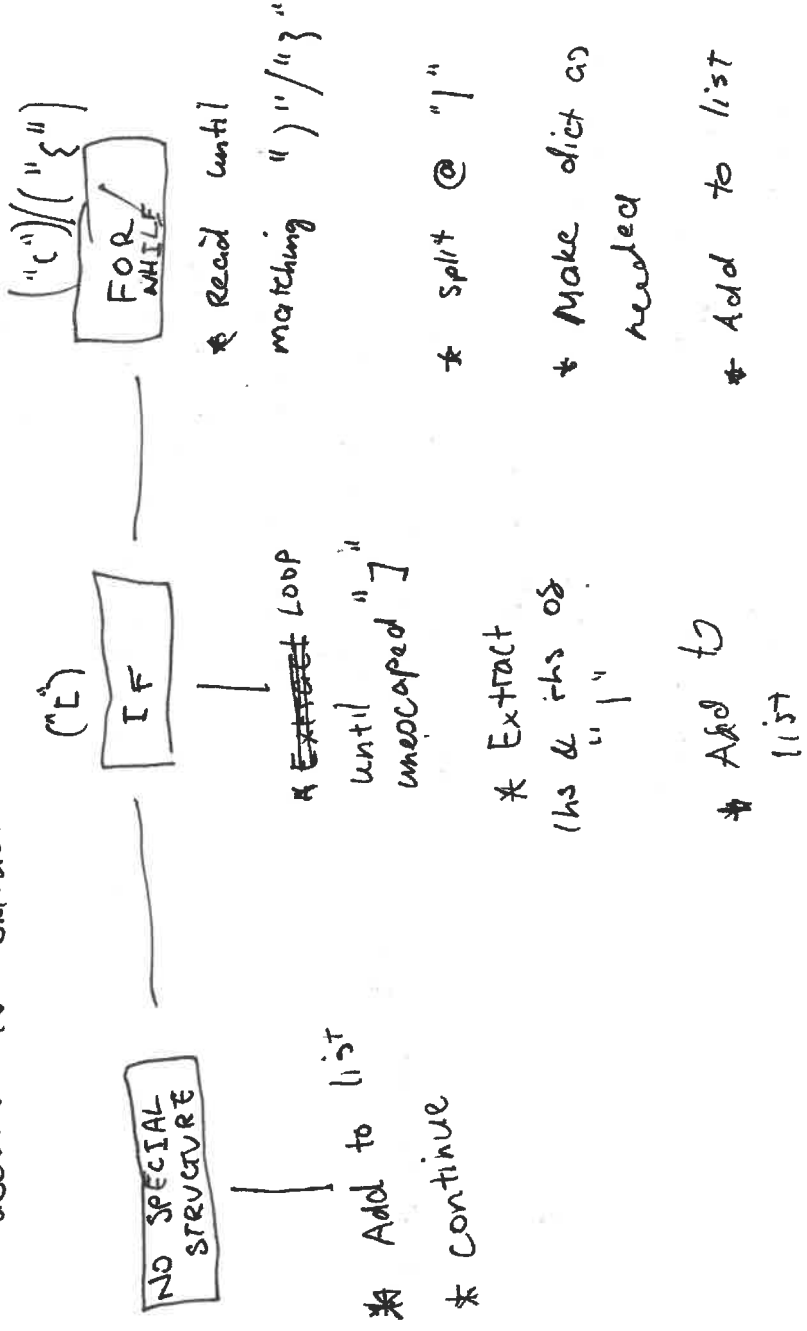 NO SPECIAL
STRUCTURE
* Add to list
* continue
("[")
IF
* Extract LOOP
until
unescaped "]"
* Extract
lhs & rhs of
"|"
* Add to
list
("(")/("{")
FOR
WHILE
* Read until
matching ")"/"}"
* Split @ "|"
* Make dict as
needed
* Add to list